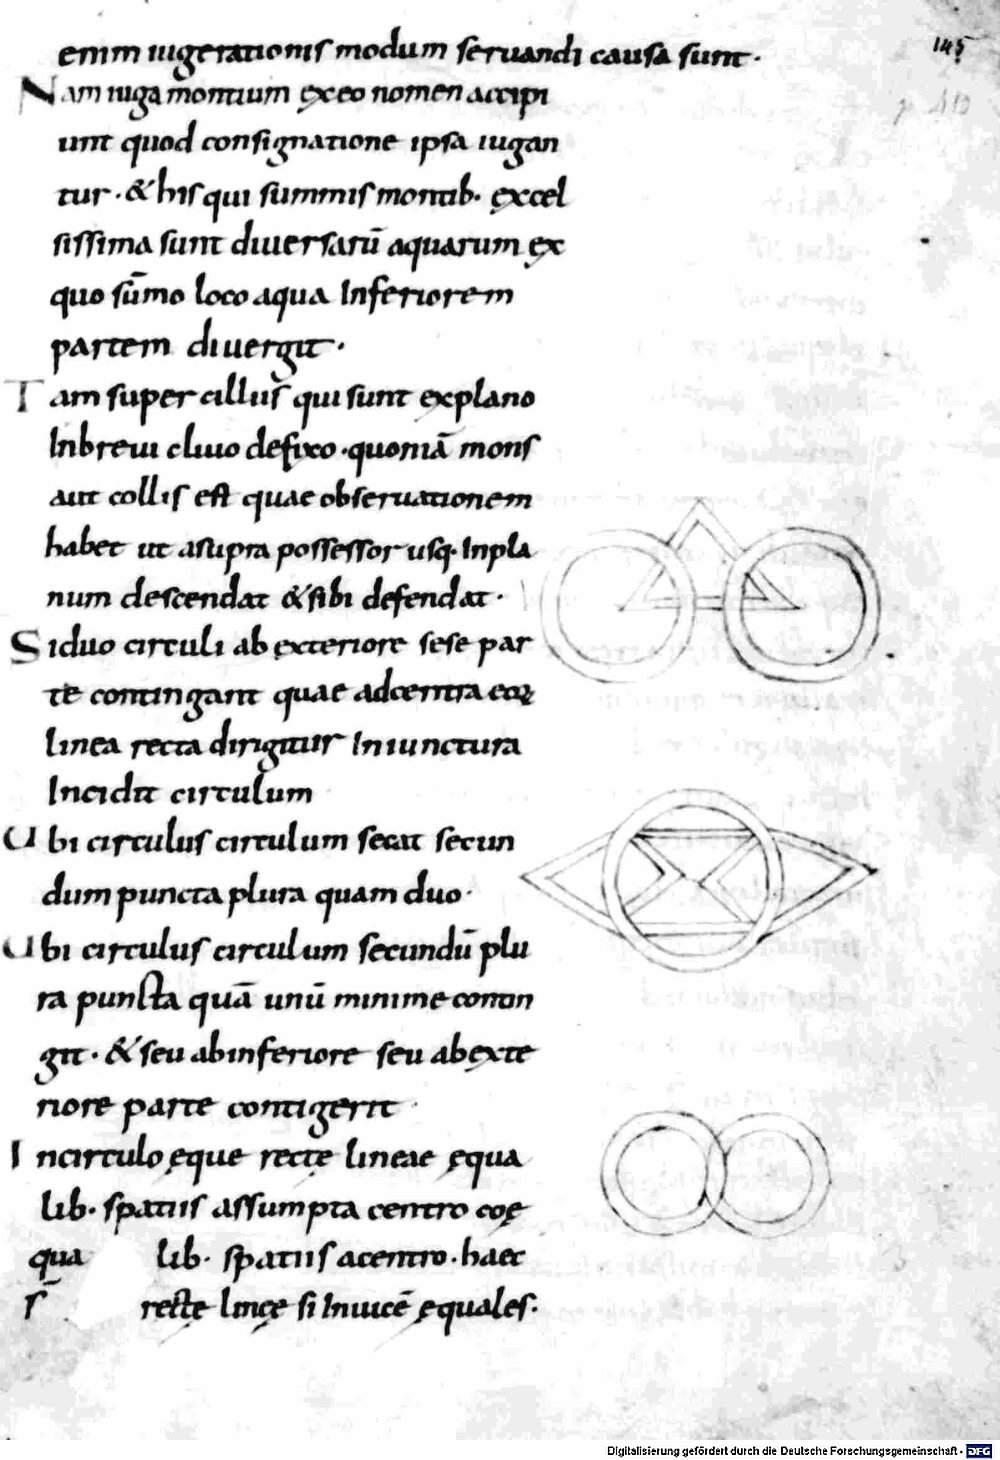 enim iugerationis modum seruandi causa sunt·
145
Nam iuga montium ex eo nomen accipi
p. 410
unt quod consignatione ipsa iugan
tur· & his qui summis montib· excel
sissima sunt diuersarū aquarum ex
quo sūmo loco aqua Inferiorem
partem diuergit·
Tam super cillus qui sunt ex plano
Inbreui cliuo defixo· quoniā mons
aut collis est quae obseruationem
habet ut asupra possessor usq· Inpla
num descendat & sibi defendat·
Siduo circuli ab exteriore sese par
te contingant quae adcentra eoꝝ
linea recta dirigitur Iniunctura
Incidit circulum
Ubi circulus circulum secat secun
dum puncta plura quam duo·
Ubi circulus circulum secundū plu
ra puncta quā unū minime contin
git· & seu abinferiore seu abexte
riore parte contigerit·
Incirculo ęque rectę lineae ęqua
lib· spatiis assumpta centro coę
qua lib· spatiis acentro· haec
s̄ rectę lineę si Inuicē ęquales·
Digitalisierung gefördert durch die Deutsche Forschungsgemeinschaft - DFG